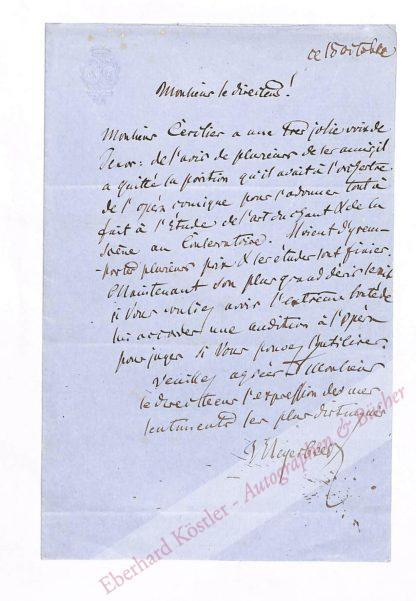 ce 18 octobre
Monsieur le directeur!
Monsieur Cècilier a une très jolie voix de
Tenor: de l'avis de plusieurs de ses amis, il
a quitté la position qu'il avait à l'orchestre
de l'opéra comique pour s'adonner tout à
fait à l'Étude de l'art du chant & de la
scène au Conservatoire. Il vient d'y rem-
-porter plusieurs prix & ses études sont finies.
Maintenant son plus grand désir serait
si Vous vouliez avoir l'extrême bonté de
lui accorder une audition à l'Opera
pour juger si Vous pouvez l'utiliser.
Veuillez agréer Monsieur
le directeur l'expression de mes
sentiments les plus distingués
Meyerbeer
Eberhard Köstler - Autographen & Bücher